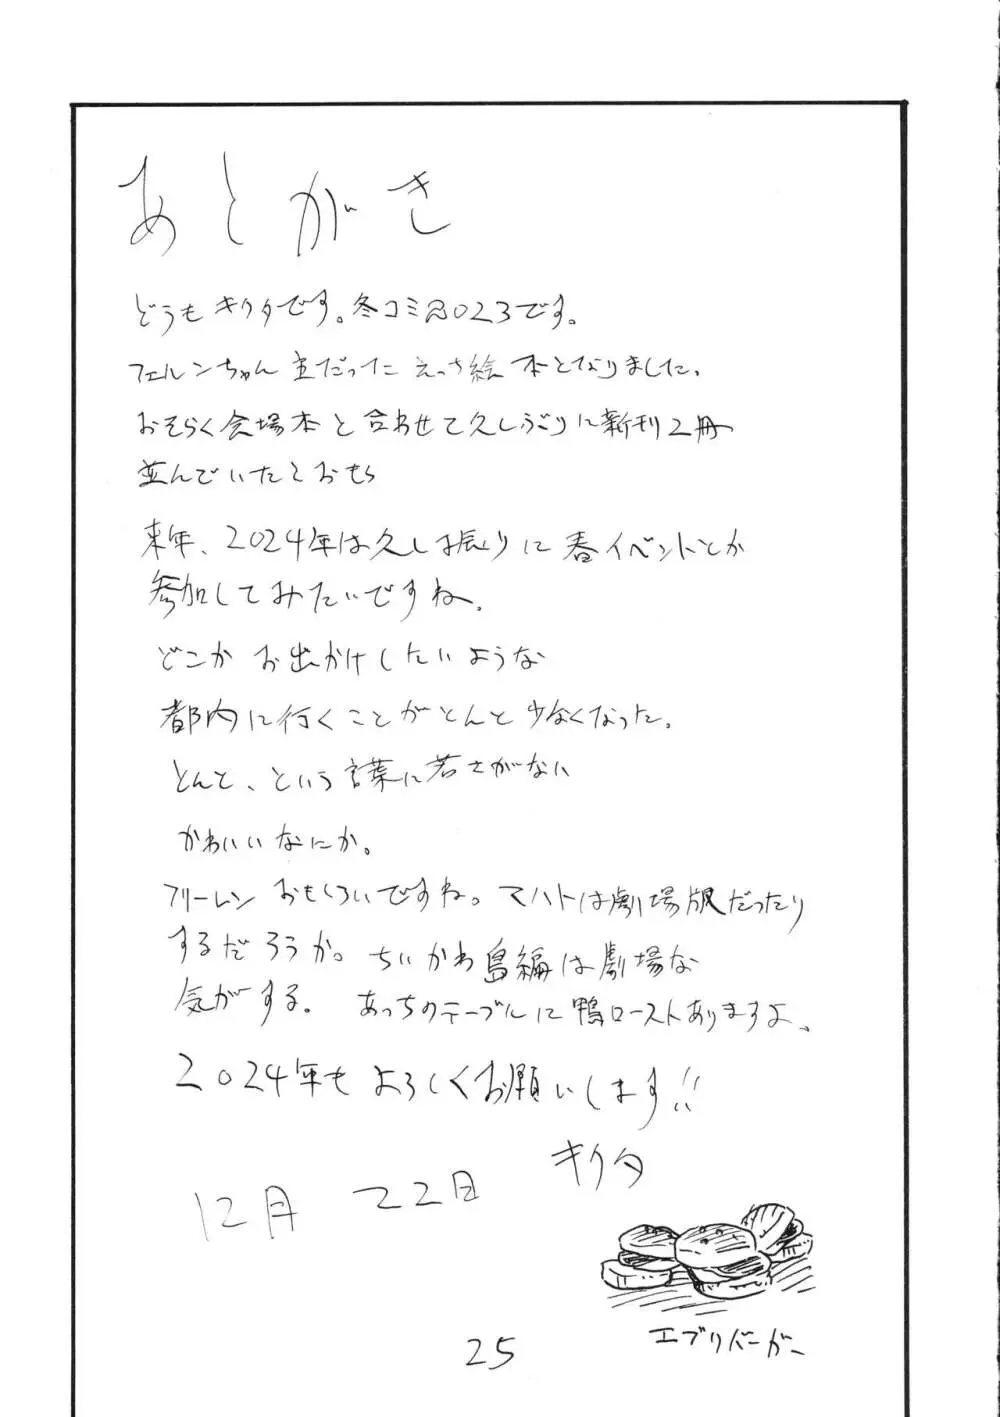 あとがき
どうもキクタです。冬コミ2023です。
フェルンちゃん主だったえっち絵本となりました。
おそらく会場本と合わせて久しぶりに新刊2冊
並んでいたとおもう
来年、2024年は久し振りに春イベントとか
参加してみたいですね。
どこかお出かけしたいような
都内に行くことがとんと少なくなった。
とんと、という言葉に若さがない
かわいいなにか。
フリーレンおもしろいですね。マハトは劇場版だったり
するだろうか。ちいかわ島編は劇場な
気がする。 あっちのテーブルに鴨ローストありますよ、
2024年もよろしくお願いします!!
キクタ
12月 22日
エブリバーガー
25